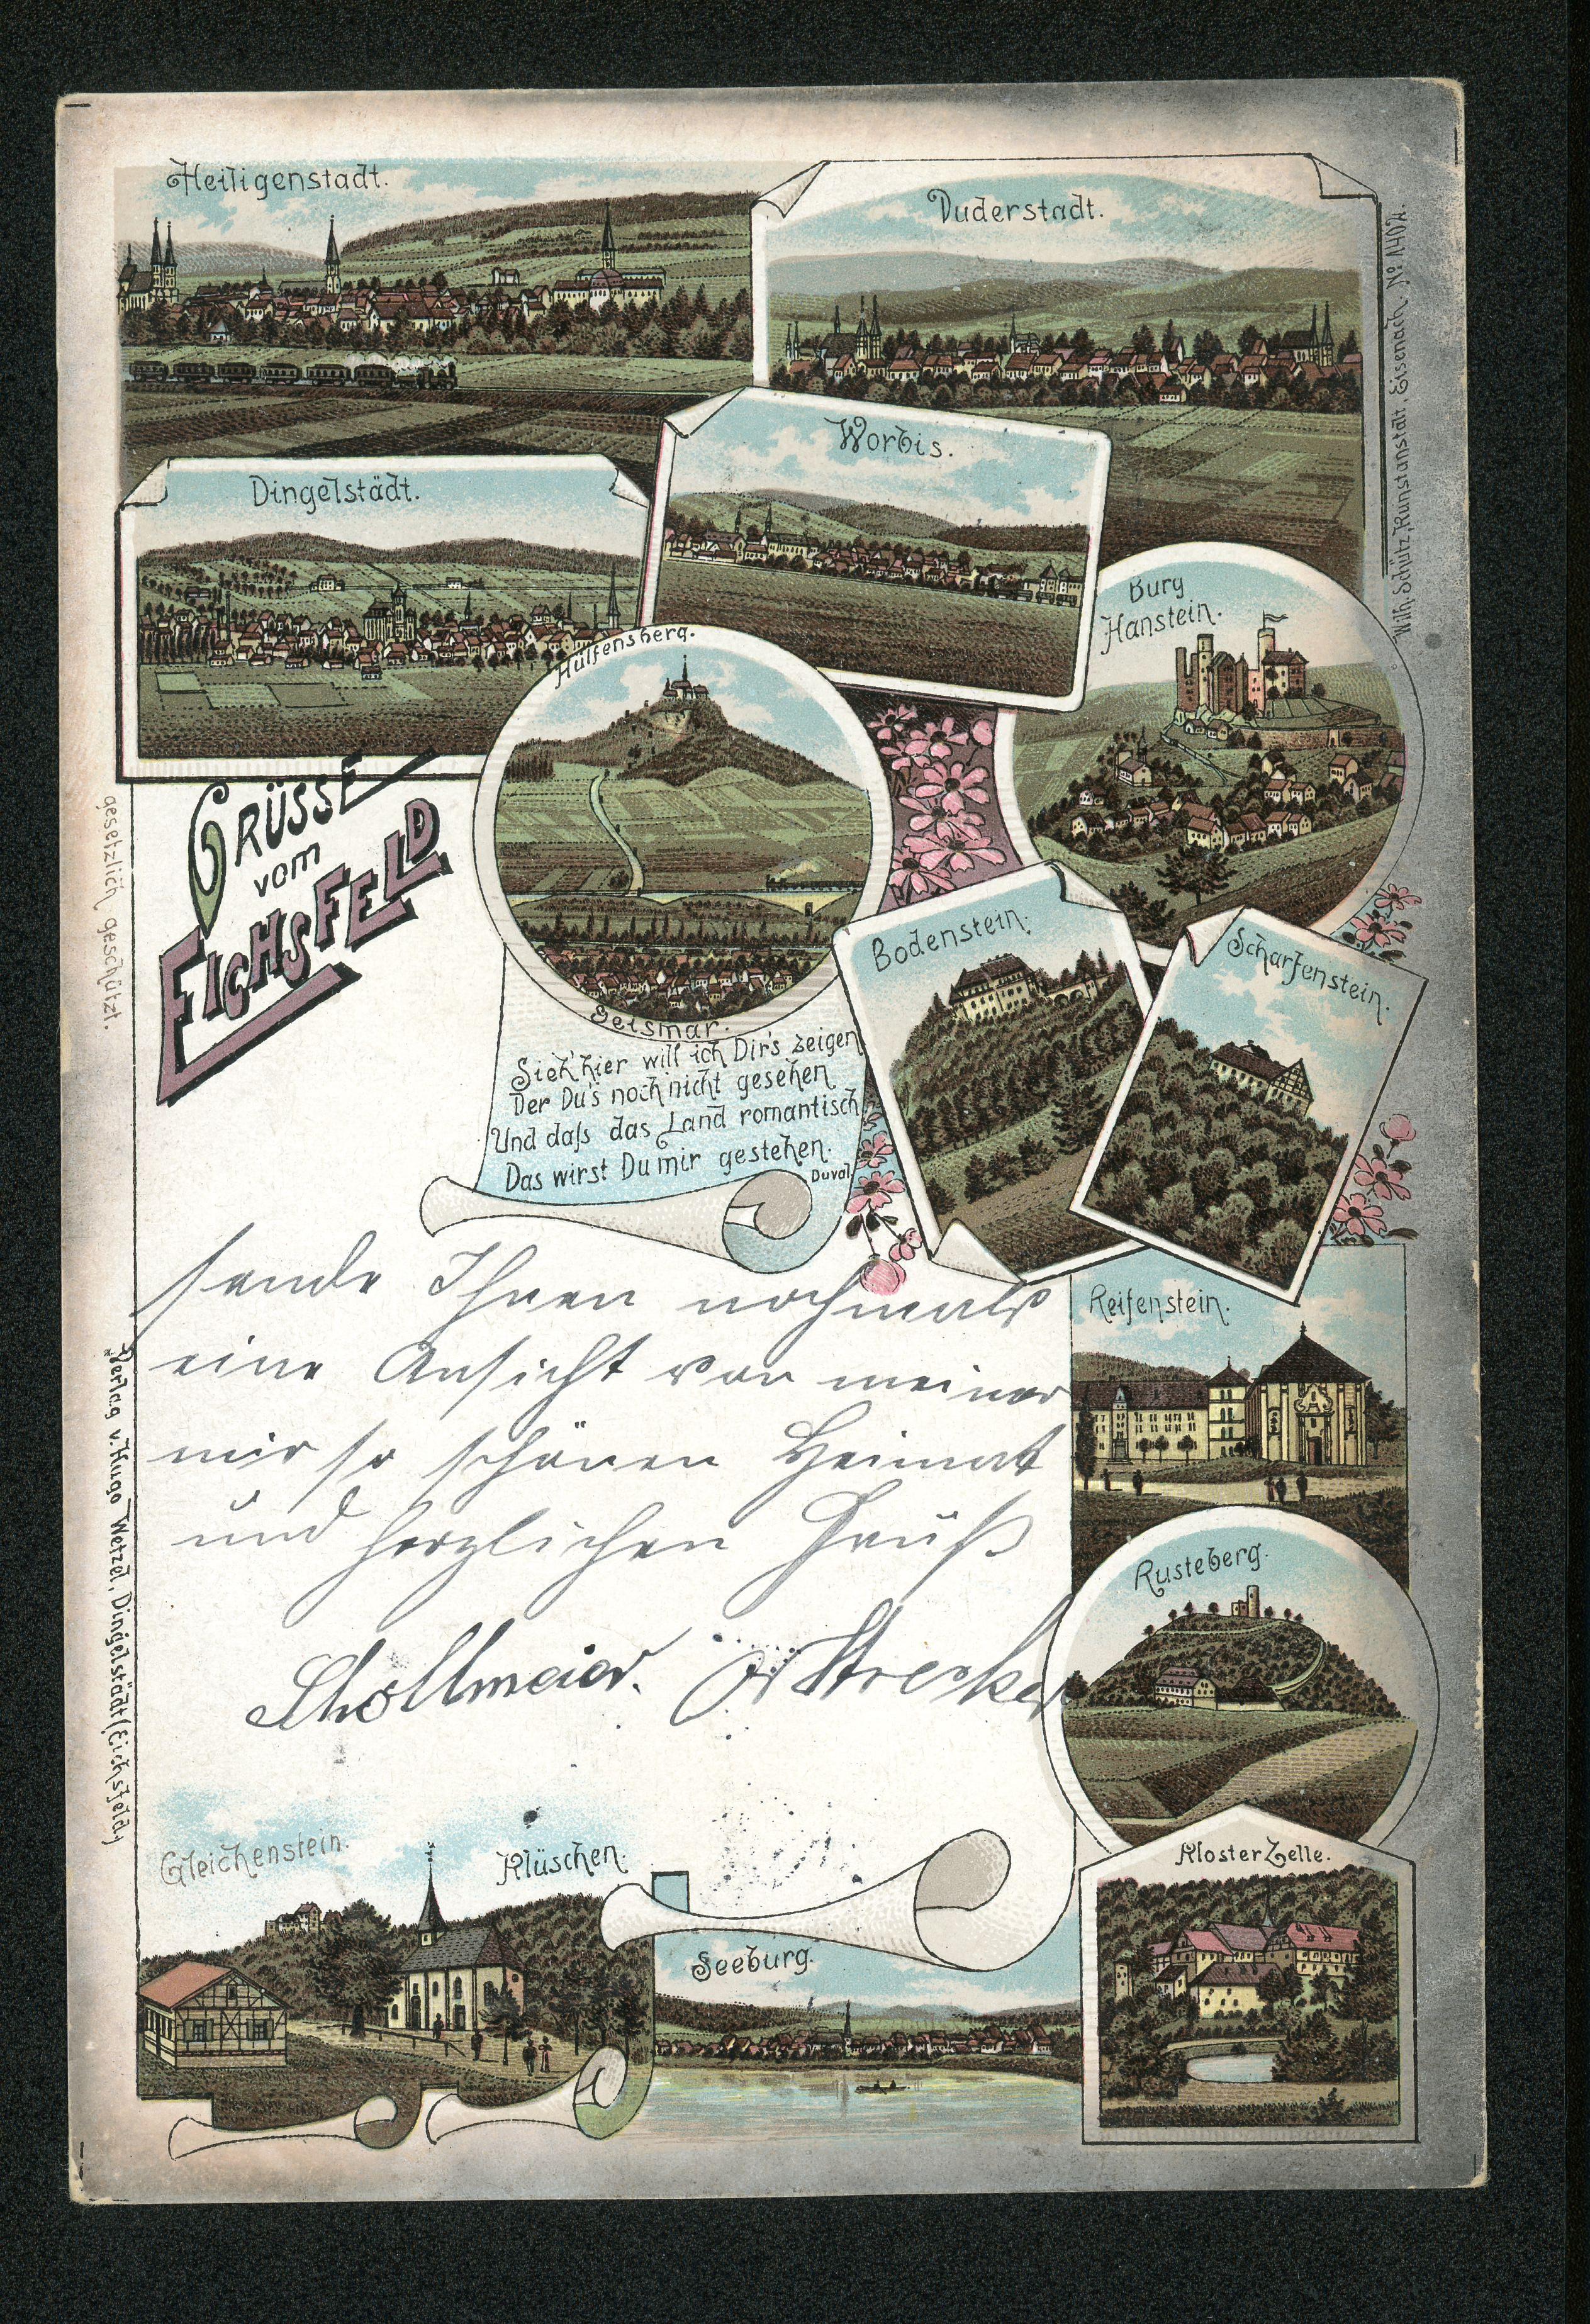 Heiligenstadt.
Duderstadt.
Worbis.
Dingelstädt.
Burg
Hanstein.
Hülfensberg.
Geismar.
GRÜSSE
vom
EICHSFELD
Bodenstein.
Scharfenstein.
Sieh' hier will ich Dir's zeigen
Der Du's noch nicht gesehen
Und daſs das Land romantisch
Das wirst Du mir gestehen.
Duval
sende Ihnen nochmals
eine Ansicht von meiner
mir so schönen Heimat
und herzlichen Gruß
Strecker
Reifenstein.
Rusteberg.
Kloster Zelle.
Gleichenstein.
Klüschen.
Seeburg.
gesetzlich geschützt.
Verlag v. Hugo Wetzel, Dingelstädt (Eichsfeld)
Wilh. Schütz, Kunstanstalt, Eisenach. No 1402.